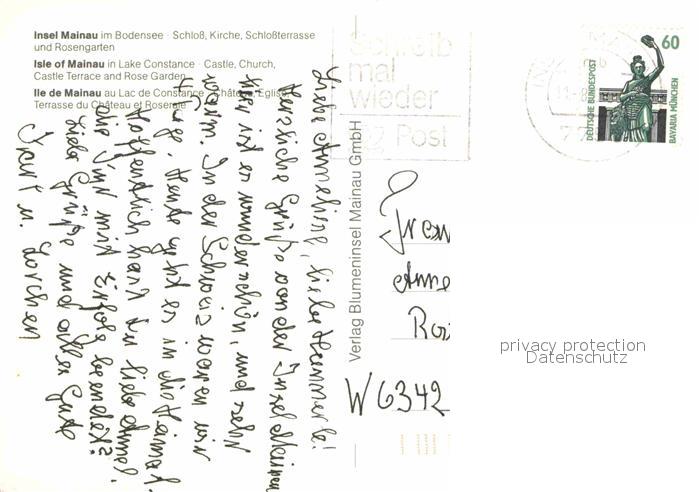 Insel Mainau im Bodensee · Schloß, Kirche, Schloßterrasse
und Rosengarten
Isle of Mainau in Lake Constance · Castle, Church,
Castle Terrace and Rose Garden
Ile de Mainau au Lac de Constance · Château, Eglise,
Terrasse du Château et Roseraie
Schreib
mal
wieder
Post
60
DEUTSCHE BUNDESPOST
BAVARIA MÜNCHEN
Liebe Anneliese, liebe Hannerle!
Herzliche Grüße von der Insel Mainau
hier ist es wunderschön, und sehr
warm. In der Schweiz waren wir
Tage. Heute geht es in die Heimat.
Hoffentlich hast du liebe Annel.
die Kur mit Erfolg beendet?
Liebe Grüße und alles Gute
Kurt u. Lorchen
Verlag Blumeninsel Mainau GmbH
Frau
Anne
W 6342
privacy protection
Datenschutz